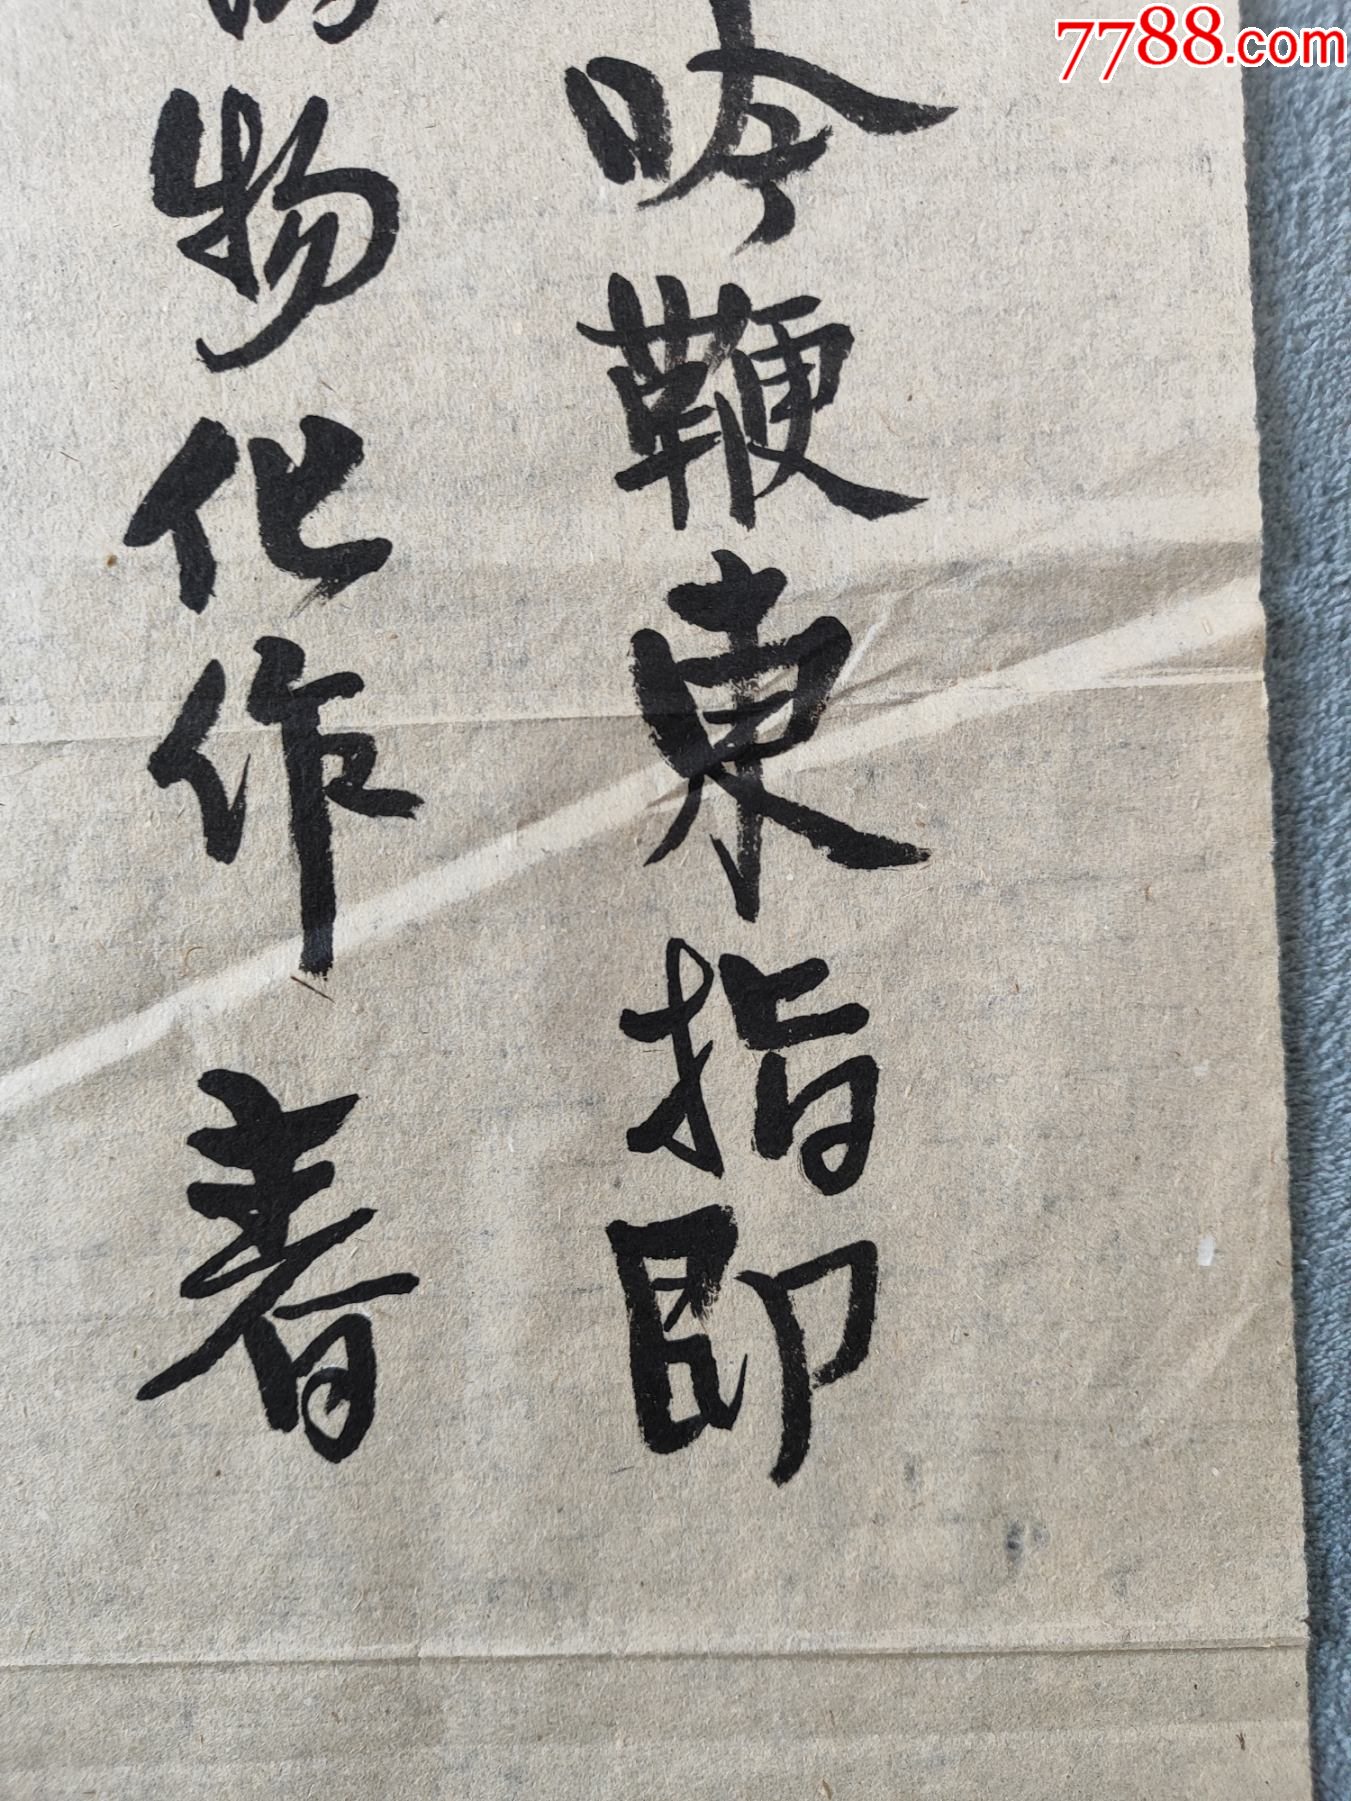 7788.com
吟鞭東指即
物化作春